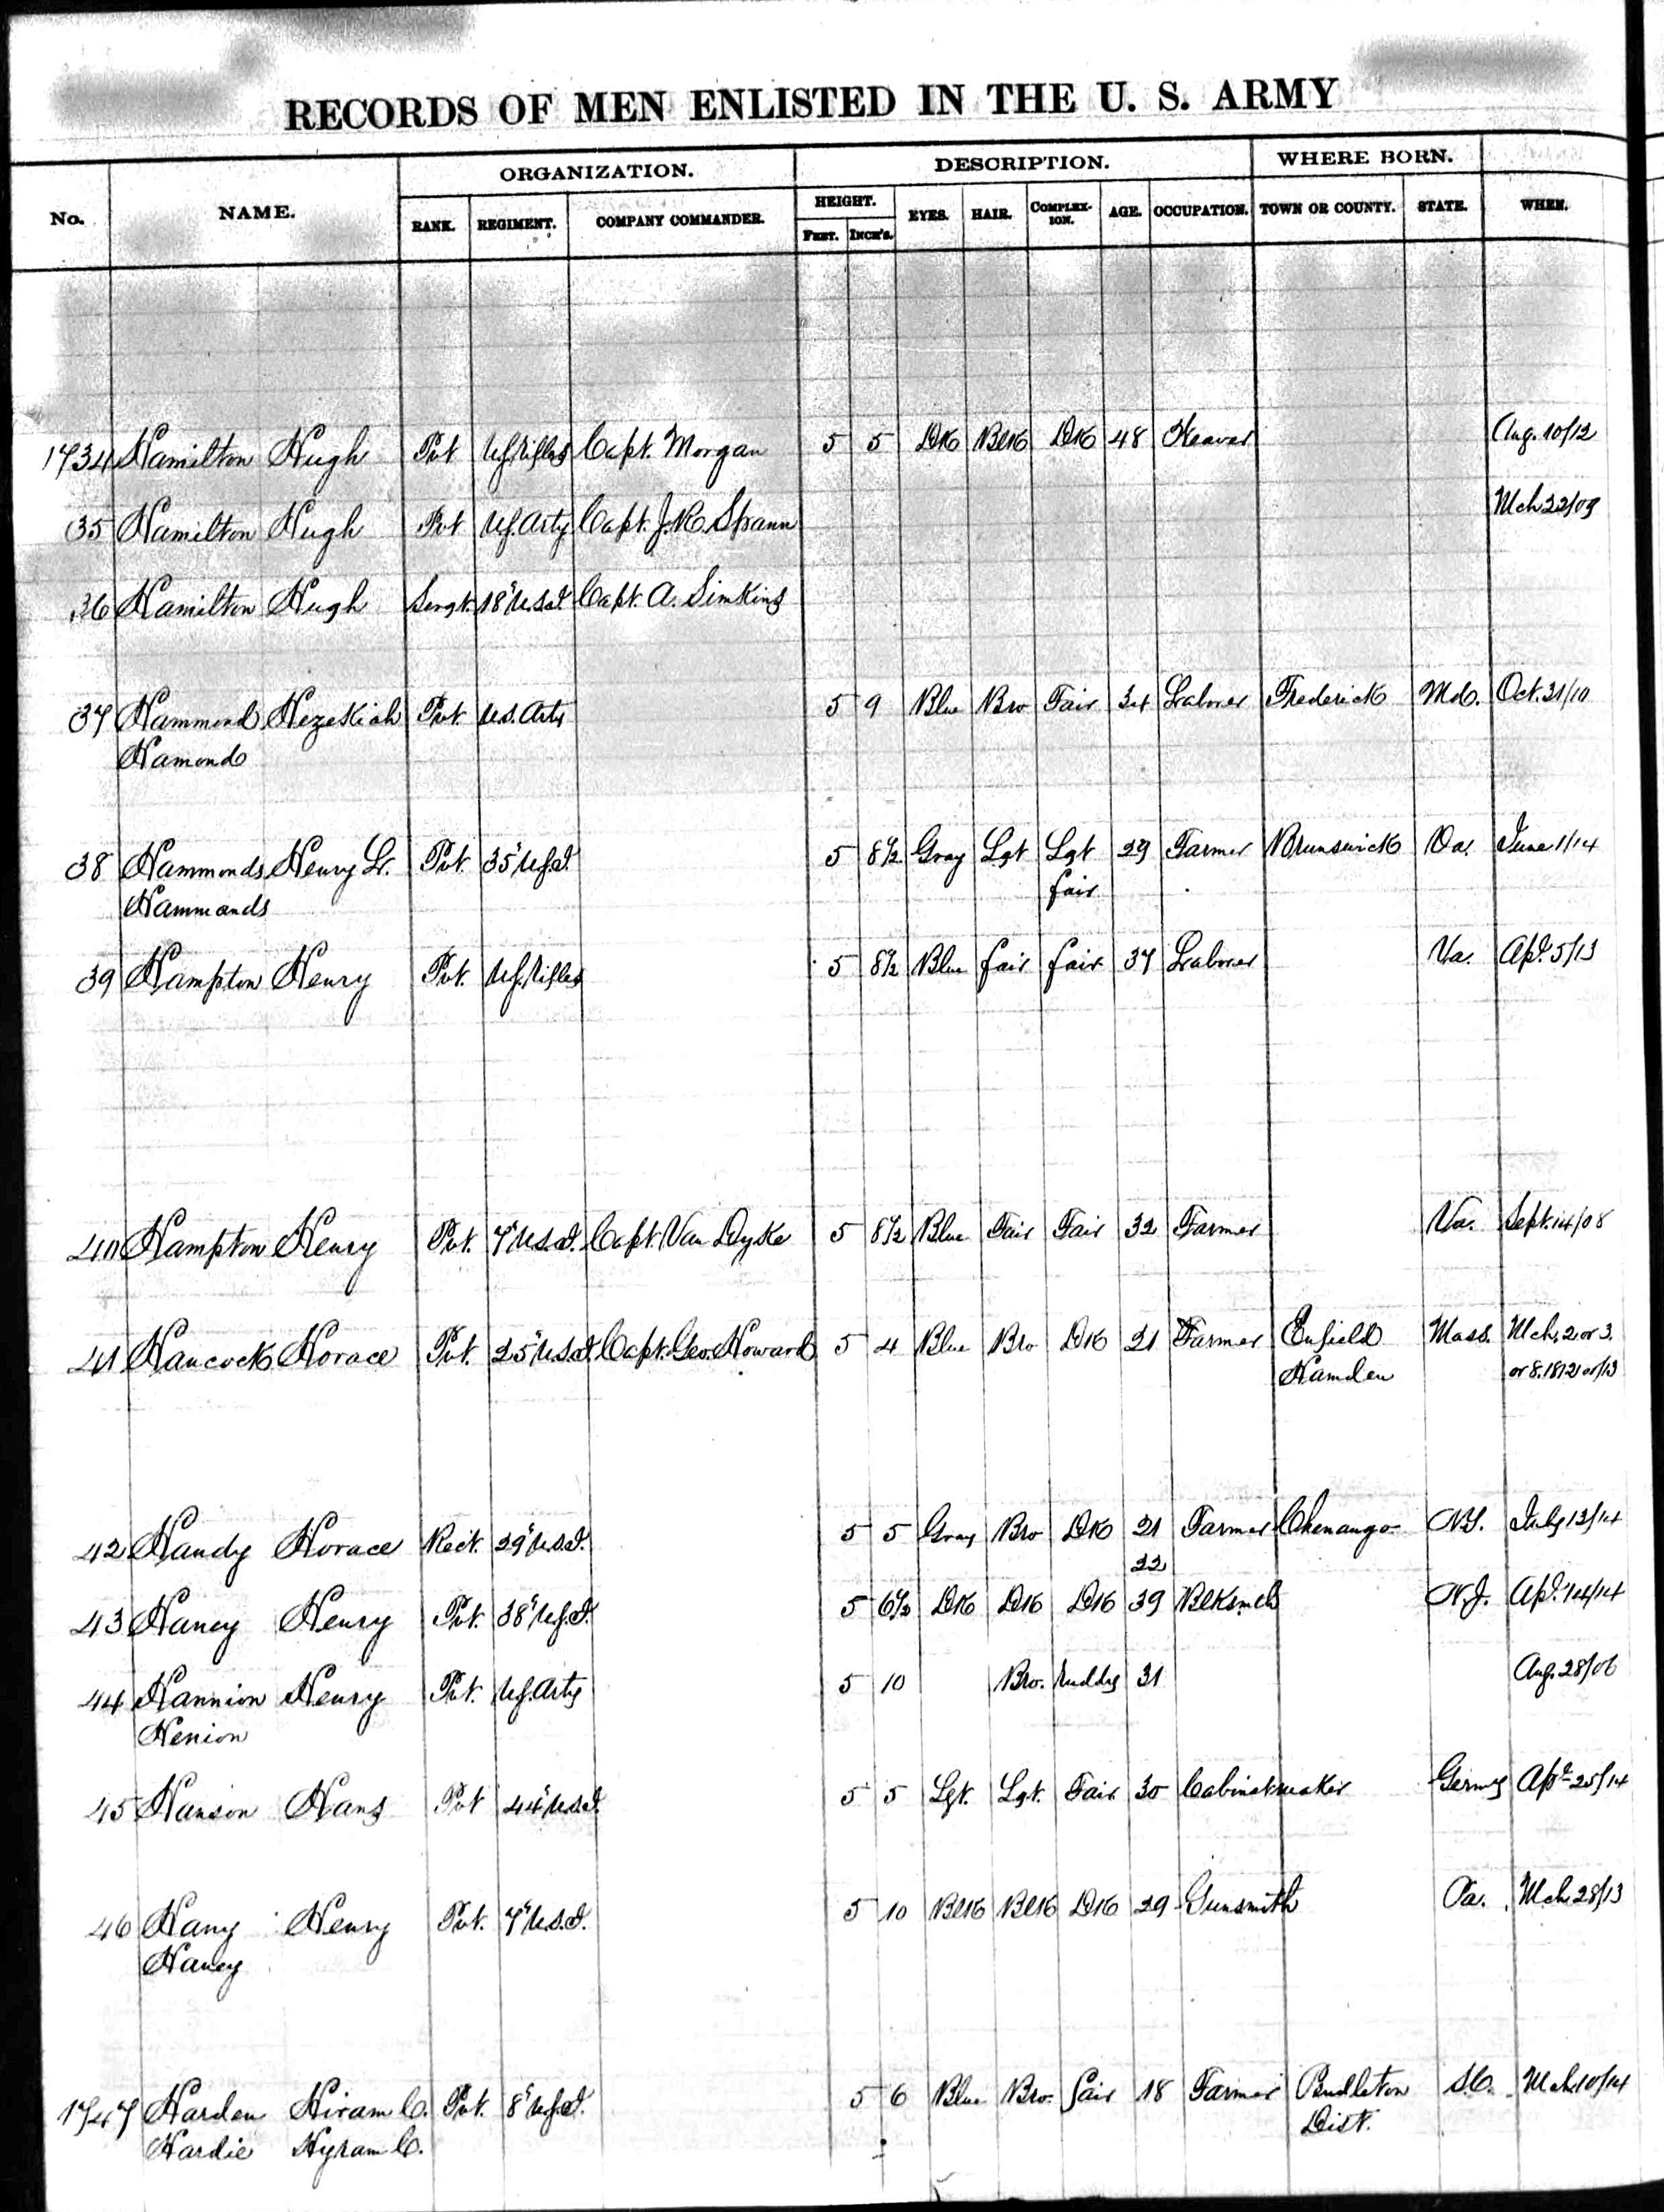 RECORDS OF MEN ENLISTED IN THE U. S. ARMY
No. NAME. ORGANIZATION. DESCRIPTION. WHERE BORN.
RANK. REGIMENT. COMPANY COMMANDER. HEIGHT. EYES. HAIR. COMPLEX-ION. AGE. OCCUPATION. TOWN OR COUNTY. STATE. WHEN.
FEET. INCH'S.
1734 Hamilton Hugh Pvt U.S. Rifles Capt. Morgan 5 5 Dk Blk Dk 48 Aug. 10/12
35 Hamilton Hugh Pvt U.S. Arty Capt. J. R. Spann Mch 22/09
36 Hamilton Hugh Sergt. 18" U.S.I. Capt. A. Simkins
37 Hammond Hezekiah Pvt. U.S. Arty 5 9 Blue Bro Fair 34 Laborer Frederick Md. Oct. 31/10
Hamond
38 Hammonds Henry L. Pvt. 35" U.S.I. 5 8½ Gray Lgt Lgt 29 Farmer Brunswick Va. June 1/14
Hammands fair
39 Hampton Henry Pvt. U.S. Rifles 5 8½ Blue fair fair 37 Laborer Va. Apl. 5/13
40 Hampton Henry Pvt. 7" U.S.I. Capt. Van Dyke 5 8½ Blue Fair Fair 32 Farmer Va. Sept. 14/08
41 Hancock Horace Pvt. 25" U.S.I. Capt. Geo. Howard 5 4 Blue Bro Dk 21 Farmer Enfield Mass. Mch. 2 or 3.
Hamden or 8. 1812 or /13
42 Handy Horace Rect. 29" U.S.I. 5 5 Gray Bro Dk 21 Farmer Chenango N.Y. July 13/14
22
43 Haney Henry Pvt. 38" U.S.I. 5 6½ Dk Dk Dk 39 Blksmth N.J. Apl. 14/14
44 Hannion Henry Pvt. U.S. Arty 5 10 Bro. Ruddy 31 Aug. 28/06
Henion
45 Hanson Hans Pvt 44" U.S.I. 5 5 Lgt. Lgt. Fair 30 Cabinetmaker Germy Apl. 25/14
46 Hany Henry Pvt. 7" U.S.I. 5 10 Blk Blk Dk 29 Gunsmith Pa. Mch 28/13
Haney
1747 Harden Hiram C. Pvt. 8" U.S.I. 5 6 Blue Bro. fair 18 Farmer Pendleton S.C. Mch 10/14
Hardie Hyram C. Dist.